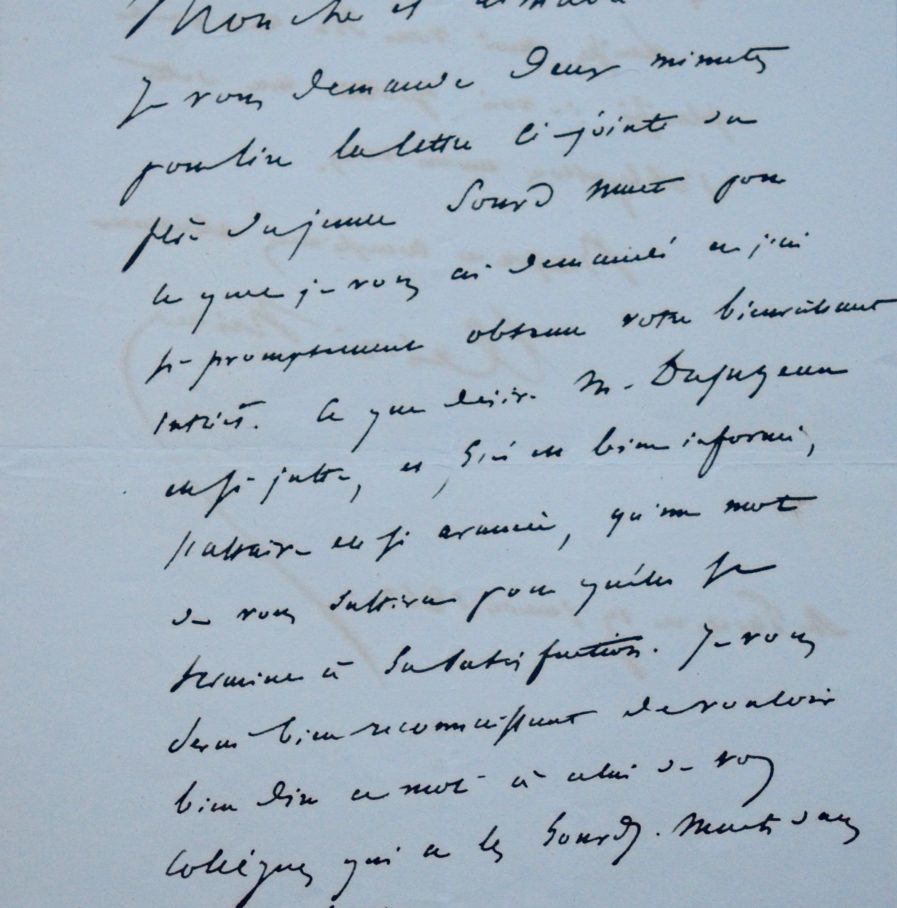 Mon cher et
Je vous demande deux minutes
pour lire la lettre ci-jointe du
père du jeune Sourd muet pour
le quel je vous ai demandé et j'ai
si promptement obtenu votre bienveillant
intérêt. Ce que désire M. Dujugeau
est si juste, et, si j'en bien informé,
l'affaire est si avancée, qu'un mot
de vous suffira pour qu'elle se
termine à sa satisfaction. Je vous
serai bien reconnaissant de vouloir
bien dire ce mot à celui de vos
collègues qui a les Sourds-Muets dans